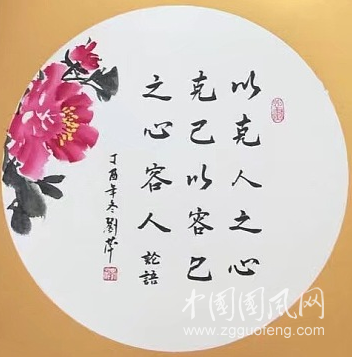 以克人之心
克己以容己
之心容人 論語
丁酉年冬劉
中國國風网
www.zgguofeng.com